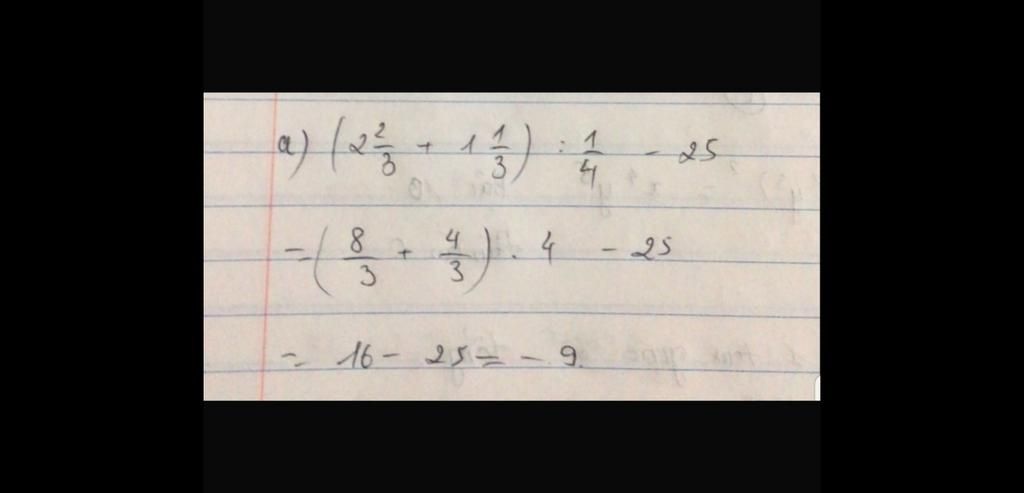 a) (2 2/3 + 1 1/3) : 1/4 - 25
= (8/3 + 4/3) . 4 - 25
= 16 - 25 = - 9.